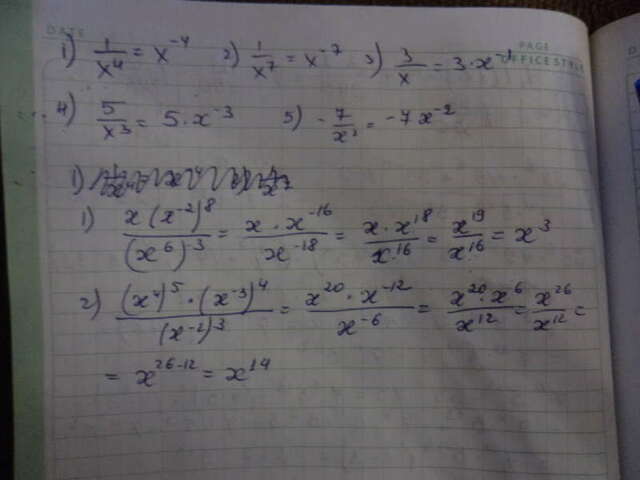 DATE
PAGE
OFFICE STYLE
1) 1/x⁴ = x⁻⁴ 2) 1/x⁷ = x⁻⁷ 3) 3/x = 3·x⁻¹
4) 5/x³ = 5·x⁻³ 5) -7/x² = -7x⁻²
1)
1) x(x⁻²)⁸/(x⁶)⁻³ = x·x⁻¹⁶/x⁻¹⁸ = x·x¹⁸/x¹⁶ = x¹⁹/x¹⁶ = x³
2) (x⁴)⁵·(x⁻³)⁴/(x⁻²)⁻³ = x²⁰·x⁻¹²/x⁻⁶ = x²⁰·x⁶/x¹² = x²⁶/x¹² =
= x²⁶⁻¹² = x¹⁴